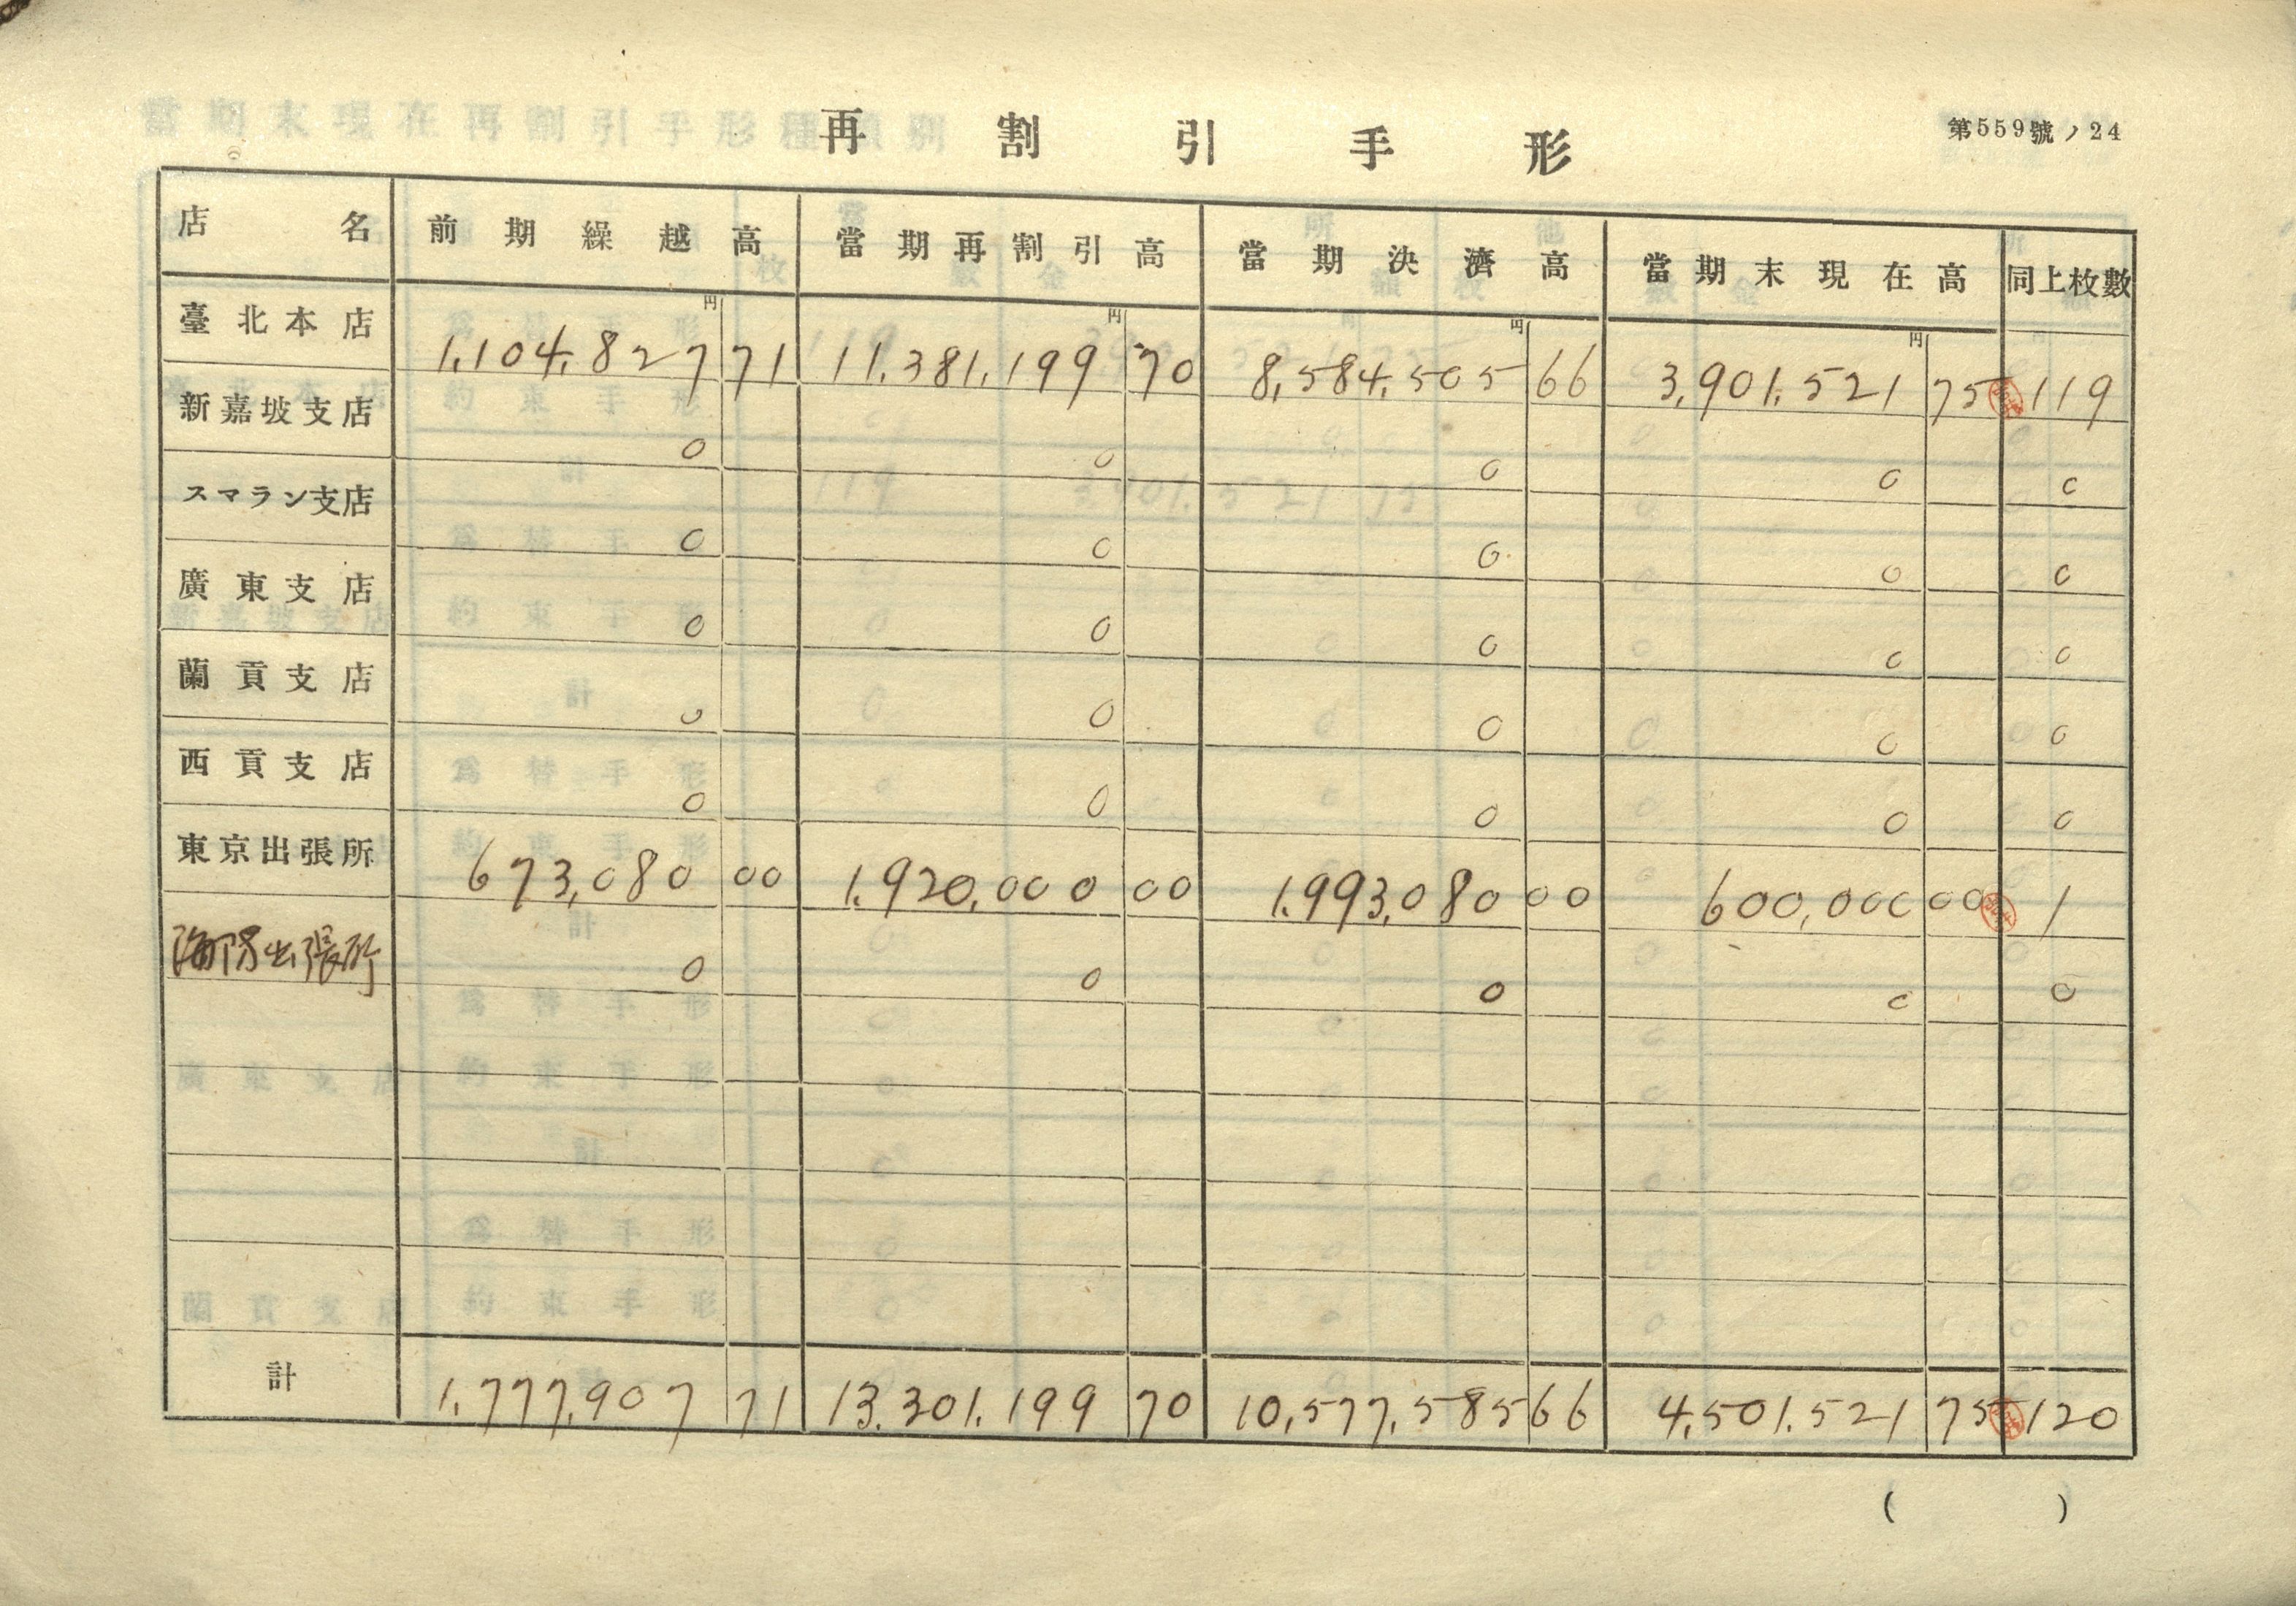 第559號ノ24
再割引手形
店名 前期繰越高 當期再割引高 當期決濟高 當期末現在高 同上枚數
円 円 円 円
臺北本店 1,104,827 71 11,381,199 70 8,584,505 66 3,901,521 75 119
新嘉坡支店 0 0 0 0 0
スマラン支店 0 0 0 0 0
廣東支店 0 0 0 0 0
蘭貢支店 0 0 0 0 0
西貢支店 0 0 0 0 0
東京出張所 673,080 00 1,920,000 00 1,993,080 00 600,000 00 1
海防出張所 0 0 0 0 0
計 1,777,907 71 13,301,199 70 10,577,585 66 4,501,521 75 120
( )